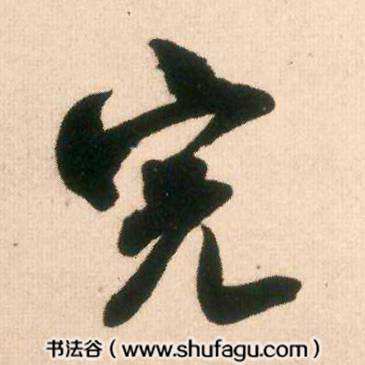 完
书法谷（www.shufagu.com）